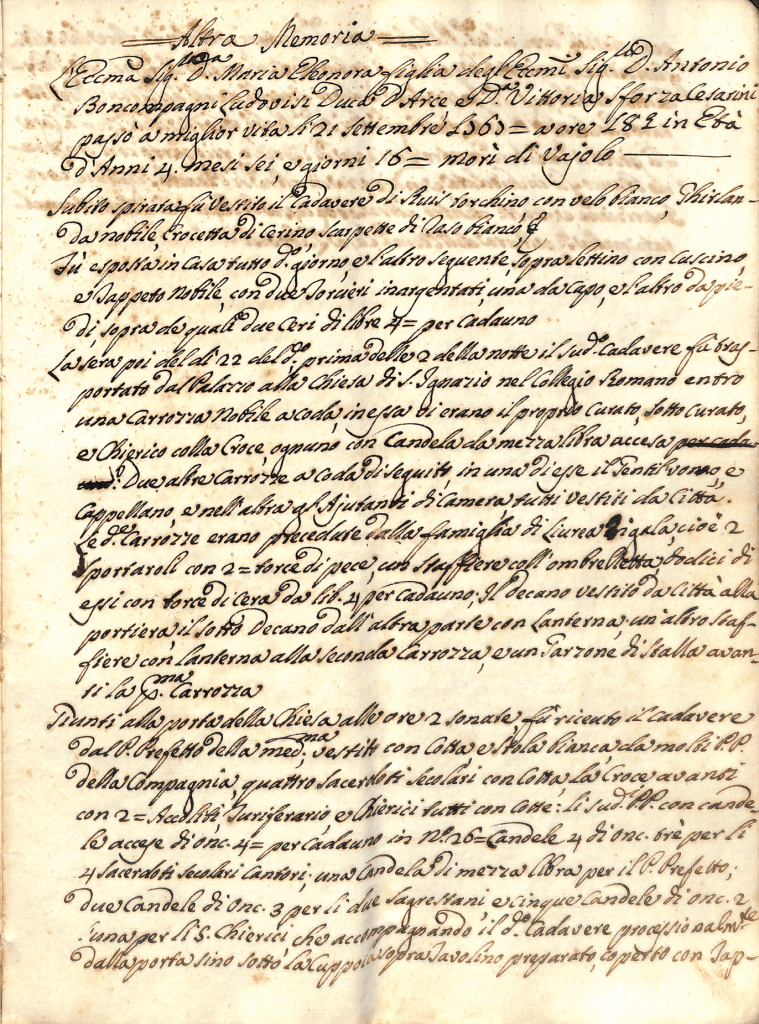 Altra Memoria
L'Eccma Sigra Da. Maria Eleonora figlia degl'Eccmi Sigri D. Antonio
Boncompagni Ludovisi Duca d'Arce e Da. Vittoria Sforza Cesarini
passò a miglior vita li 21 settembre 1763= a ore 18 in Età
d'Anni 4. mesi sei, e giorni 16= morì di Vajolo
Subito spirata fù vestito il Cadavere di Ruis torchino con velo bianco, Ghirlan-
da nobile, Crocetta di Cerino scarpette di Raso bianco,
Fù esposta in Casa tutto do. giorno, e l'altro seguente, sopra lettino con Cuscino,
e Tappeto Nobile, con due Torcieri inargentati, una da Capo, e l'altro da pie-
di, sopra de quali due Ceri di libre 4= per Cadauno
La sera poi del dì 22 del do. prima delle 2 della notte il sudo. Cadavere fù tras-
portato dal Palazzo alla Chiesa di S. Ignazio nel Collegio Romano entro
una Carrozza Nobile a coda, in essa vi erano il proprio Curato, sotto Curato,
e Chierico colla Croce, ognuno con Candela da mezza libra accesa per cada-
uno. Due altre Carrozze a Coda di seguito, in una di esse il Gentil'uomo, e
Cappellano, e nell'altra gl'Ajutanti di Camera, tutti vestiti da Città.
Le de. Carrozze erano precedute dalla famiglia di Livrea in gala, cioè 2
sportaroli con 2= torce di pece, uno staffiere coll'ombrelletta, dodici di
essi con torce di Cera da lib. 4 per Cadauno, Il Decano vestito da Città alla
portiera, il sotto Decano dall'altra parte con Lanterna, un'altro staf-
fiere con lanterna alla seconda Carrozza, e un Garzone di stalla avan-
ti la pma. Carrozza
Giunti alla porta della Chiesa alle ore 2 sonate, fù riceuto il cadavere
dal P. Prefetto della medma. vestito con Cotta e stola bianca da molti P.P.
della Compagnia, quattro sacerdoti secolari con Cotta, la Croce avanti
con 2= Accoliti, Turiferario, e Chierici tutti con Cotte: li sudi. P.P. con cande-
le accese di onc. 4= per Cadauno in No. 26= Candele 4 di onc. trè per li
4 sacerdoti secolari Cantori, una Candela di mezza libra per il P. Prefetto;
due Candele di onc. 3 per li due sagrestani e cinque Candele di onc. 2
l'una per li 5. Chierici, che accompagnando il do. Cadavere processionalmte
dalla porta sino sotto la Cuppola sopra Tavolino preparato, coperto con Tap-